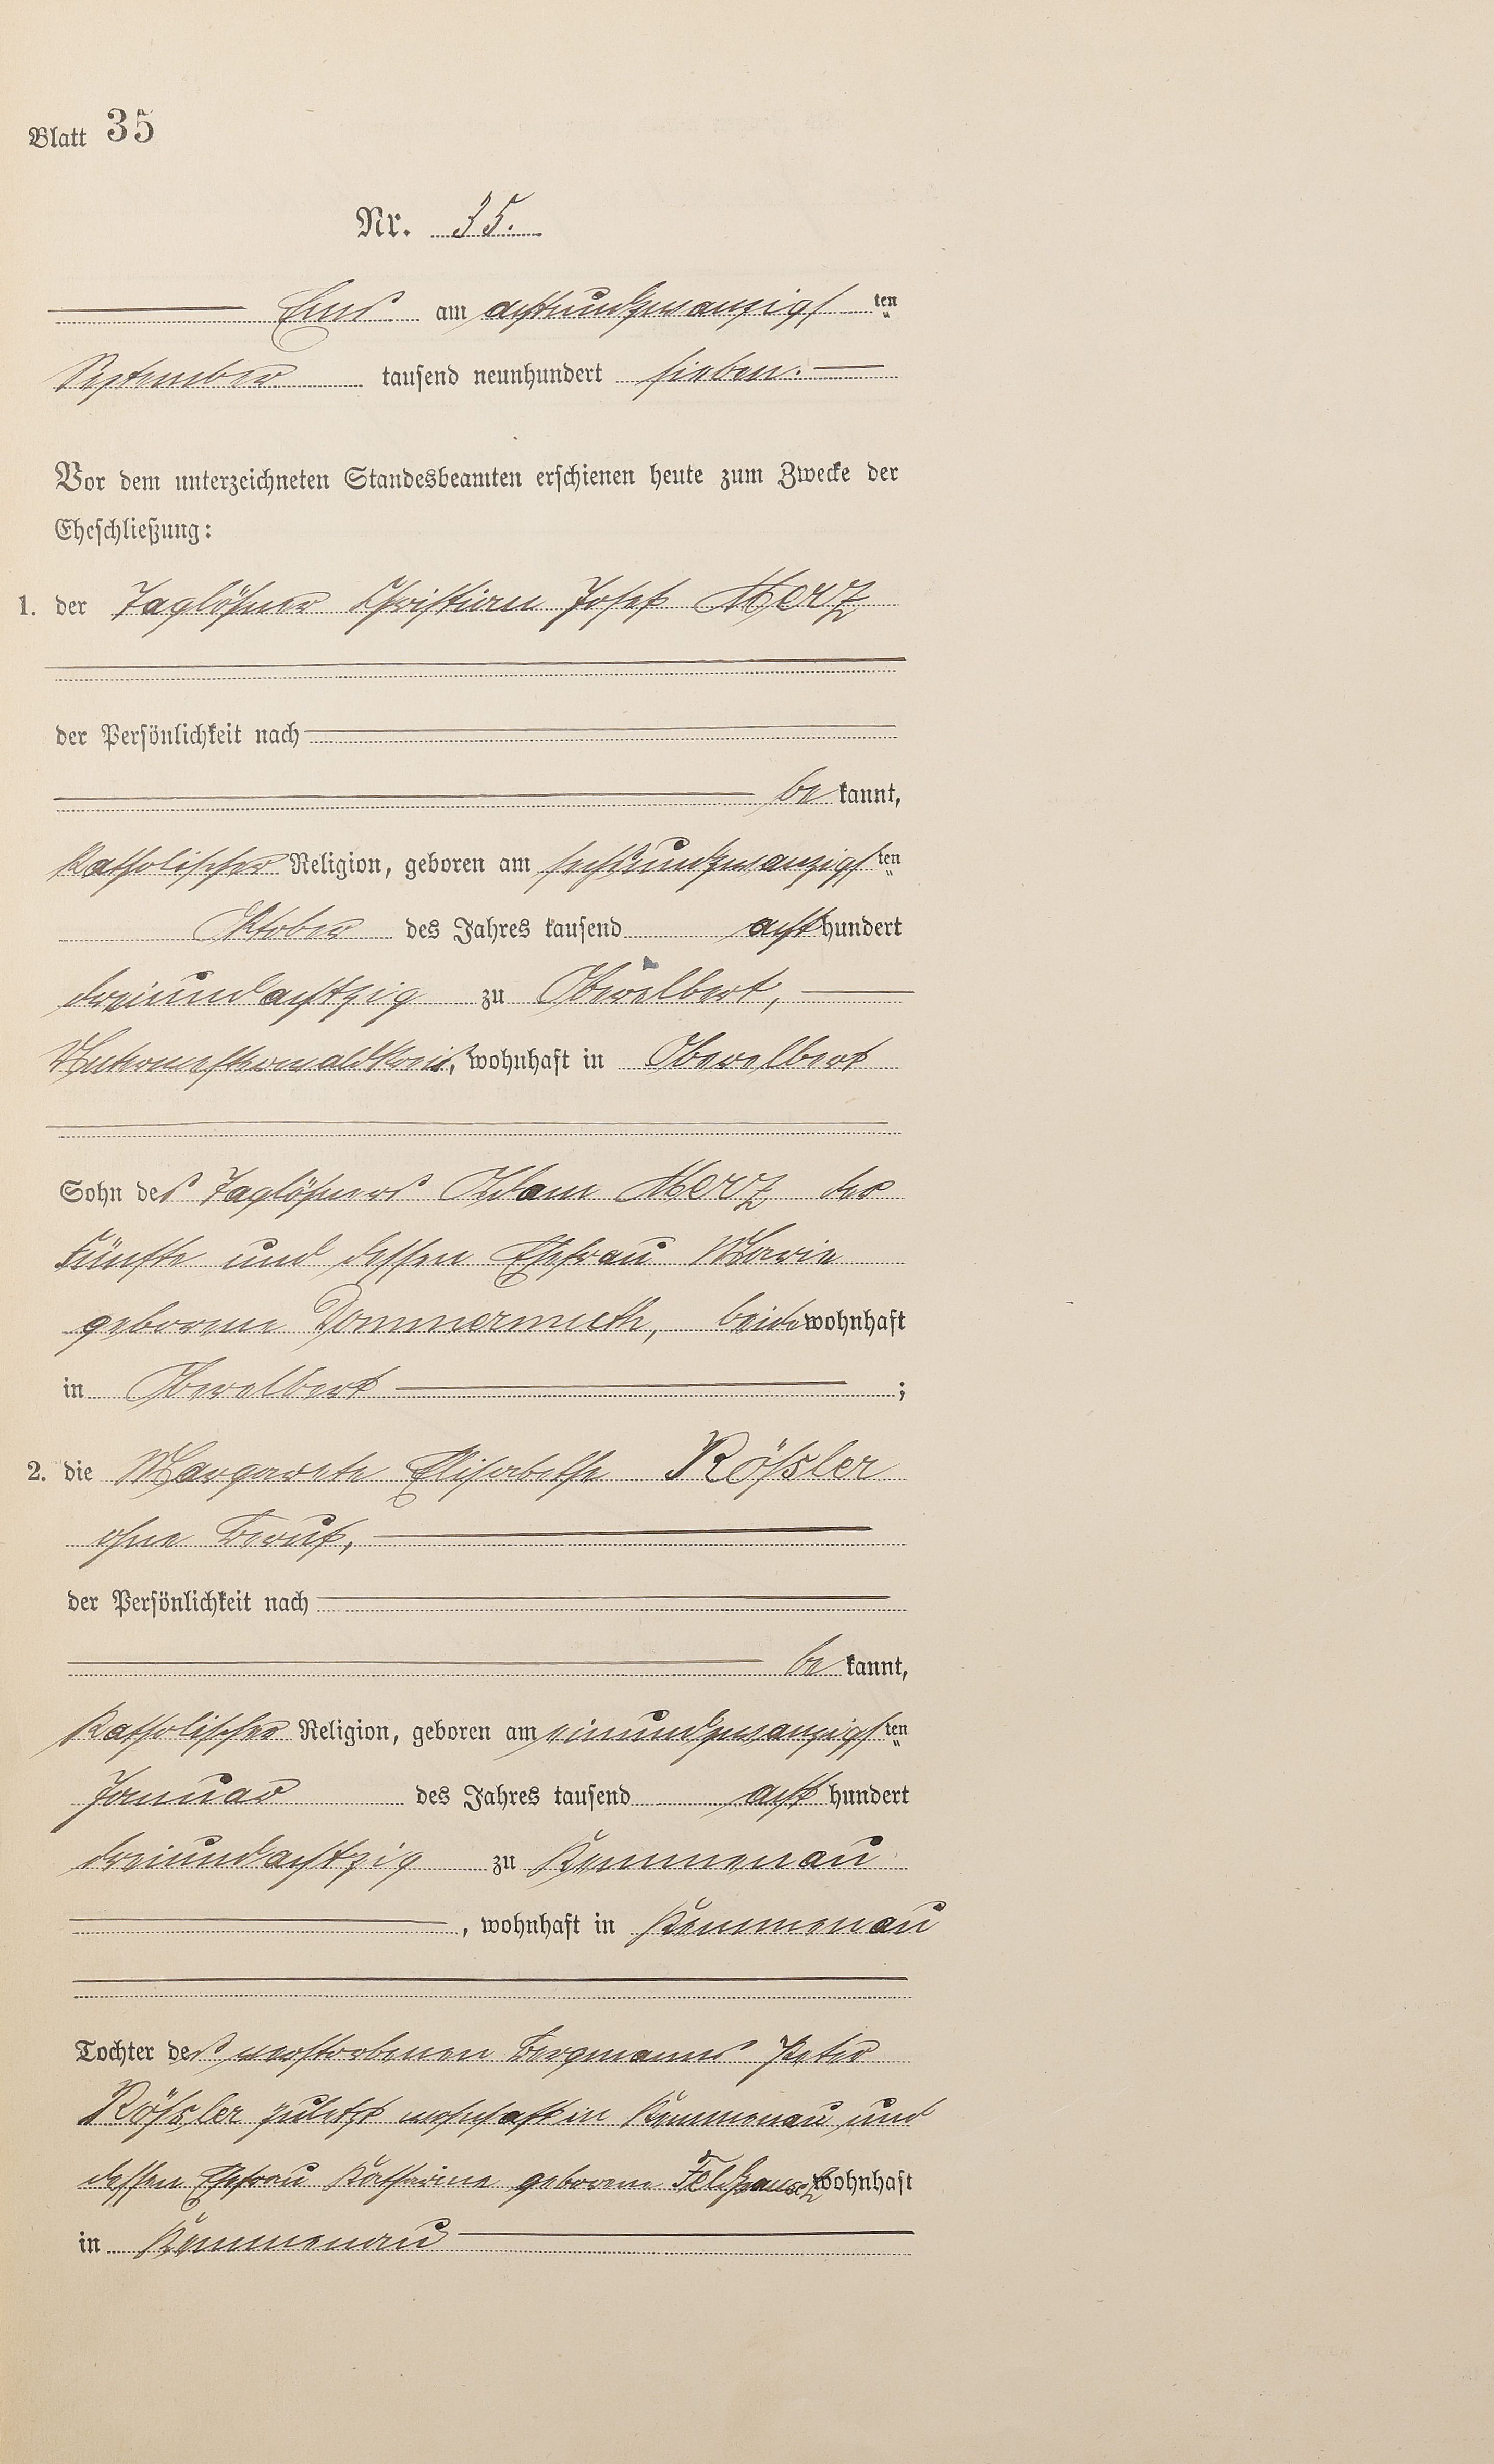 Blatt 35
Nr. 35.
Ems am achtundzwanzigsten
September tausend neunhundert sieben.
Vor dem unterzeichneten Standesbeamten erschienen heute zum Zwecke der
Eheschließung:
1. der Taglöhner Christian Josef Merz
der Persönlichkeit nach
bekannt,
katholischer Religion, geboren am sechsundzwanzigsten
Oktober des Jahres tausend achthundert
dreiundachtzig zu Oberelbert,
Unterwesterwaldkreis, wohnhaft in Oberelbert
Sohn des Taglöhners Adam Merz der
Fünfte und dessen Ehefrau Marie
geborene Dommermuth, beide wohnhaft
in Oberelbert ;
2. die Margarete Elisabethe Rößler
ohne Beruf,
der Persönlichkeit nach
bekannt,
katholischer Religion, geboren am einundzwanzigsten
Januar des Jahres tausend acht hundert
dreiundachtzig zu Kemmenau
, wohnhaft in Kemmenau
Tochter des verstorbenen Bergmanns Peter
Rößler zuletzt wohnhaft in Kemmenau und
dessen Ehefrau Katharine geborene wohnhaft
in Kemmenau